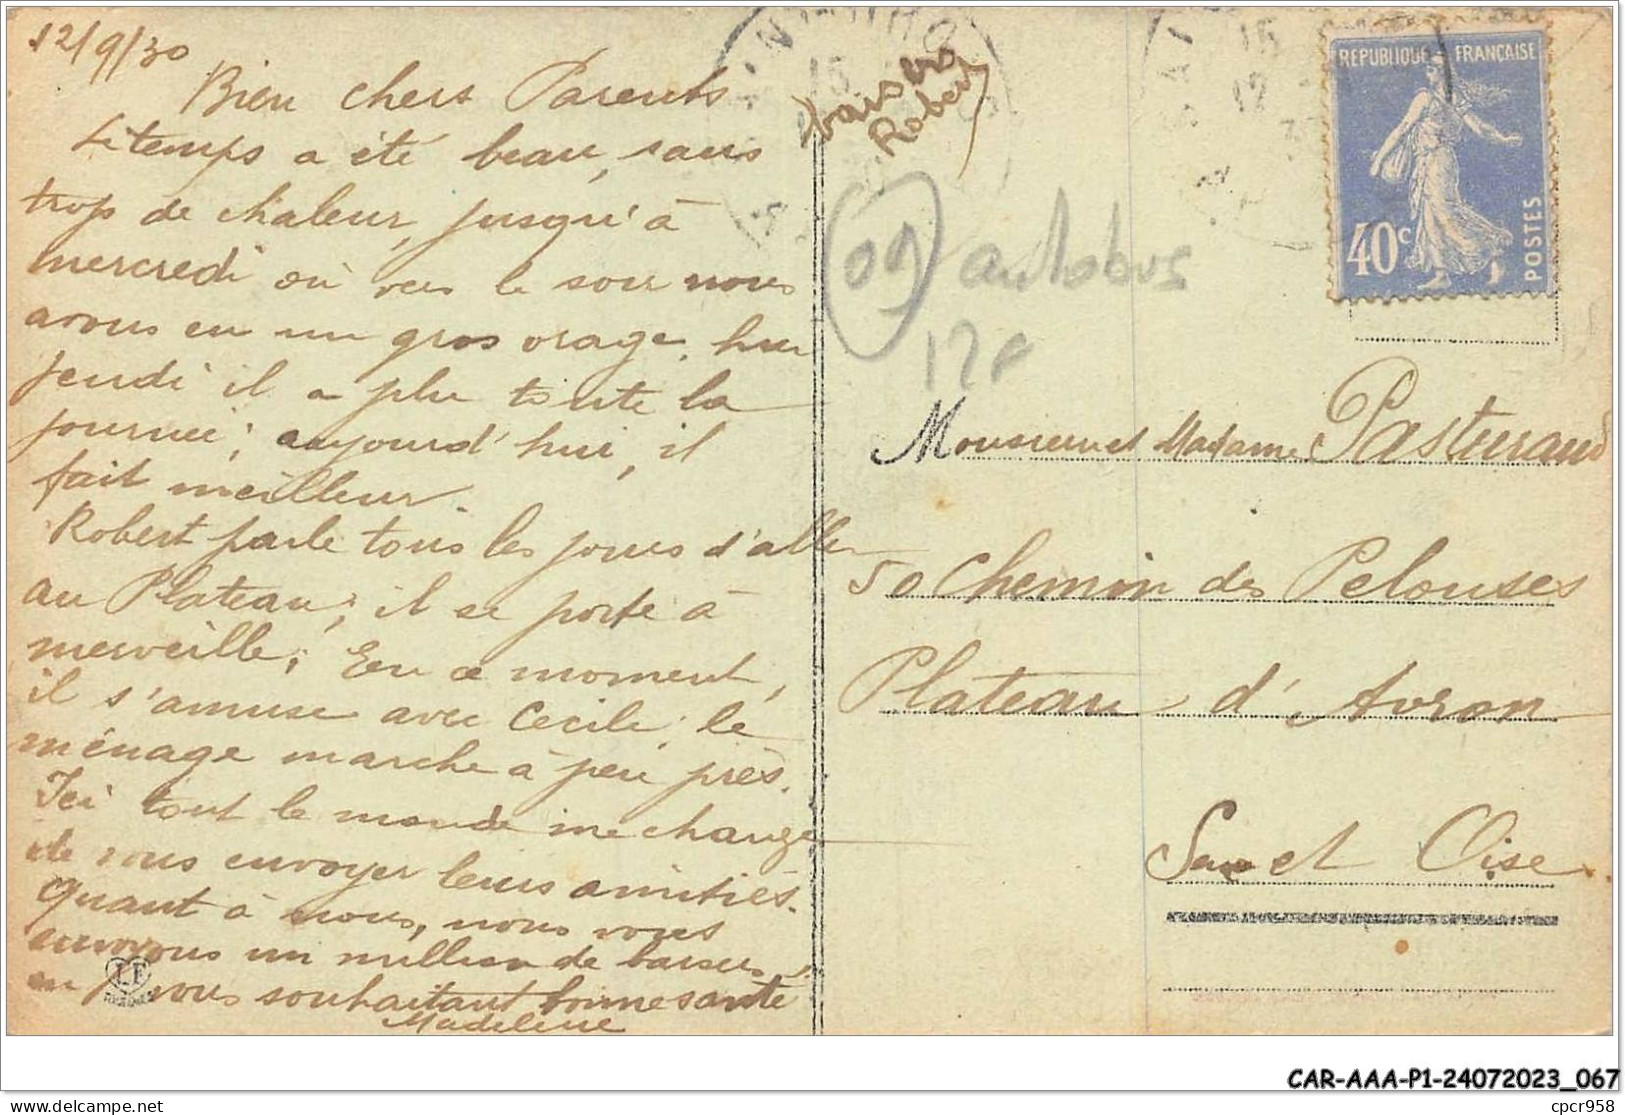 12/9/30
Bien chers Parents
Le temps a été beau, sans
trop de chaleur, jusqu'à
mercredi où vers le soir nous
avons eu un gros orage, hier
jeudi il a plu toute la
journée; aujourd'hui, il
fait meilleur.
Robert parle tous les jours d'aller
au Plateau; il se porte à
merveille; En ce moment,
il s'amuse avec Cécile, le
ménage marche à peu près.
Ici tout le monde me charge
de vous envoyer leurs amitiés.
Quant à nous, nous vous
envoyons un million de baisers
en vous souhaitant bonne santé
Madeleine
baisers
Robert
09 autobus
12F
REPUBLIQUE FRANÇAISE
40c
POSTES
Monsieur et Madame Pasturaud
50 Chemin des Pelouses
Plateau d'Avron
Seine et Oise
CAR-AAA-P1-24072023_067
delcampe.net
cpcr958